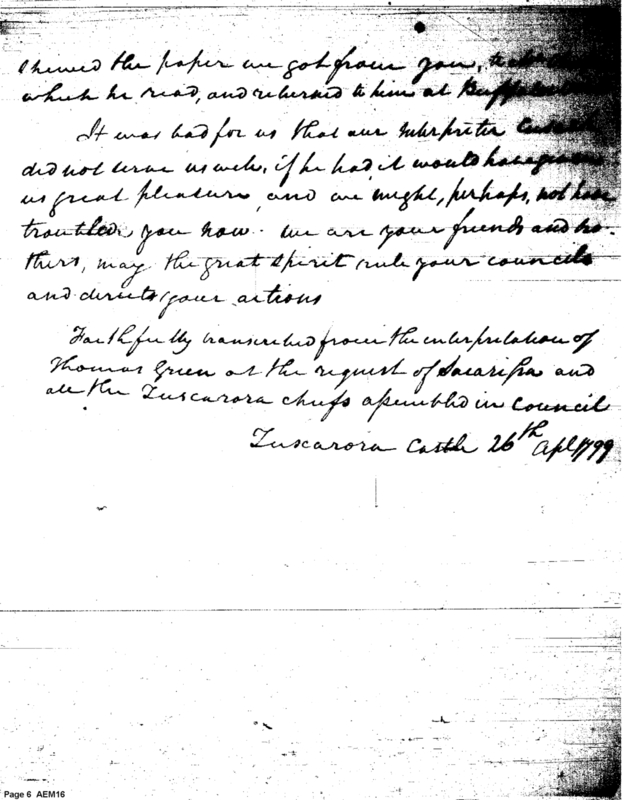 shewed the paper we got from you, to
which he read, and returned to him at
It was bad for us that our Interpreter
did not serve us well, if he had it would have given
us great pleasure, and we might, perhaps, not have
troubled you now. we are your friends and bro-
thers, may the great Spirit rule your councils
and direct your actions
Faithfully transcribed from the interpretation of
Thomas Green at the request of Sacarissa and
all the Tuscarora chiefs assembled in Council
Tuscarora Castle 26th Apl 1799
Page 6 AEM16